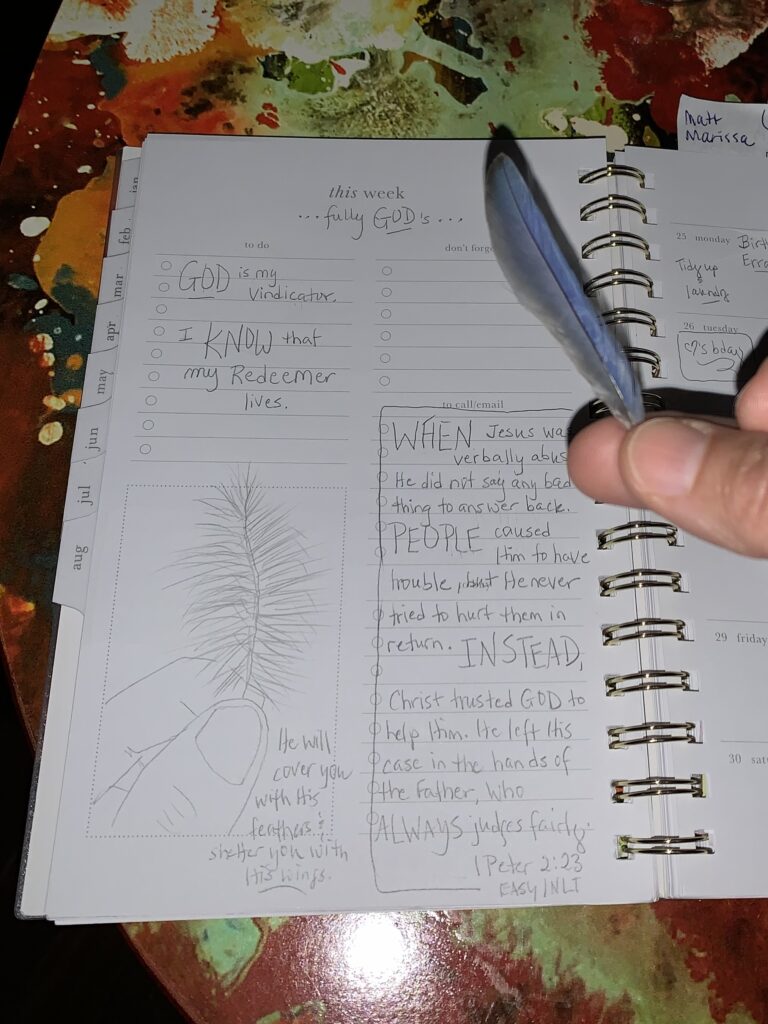 this week
...fully GOD's...
to do
GOD is my
Vindicator.
I KNOW that
my Redeemer
lives.
He will
cover you
with His
feathers &
shelter you with
His wings.
don't forge
to call/email
WHEN Jesus was
verbally abus
He did not say any bad
thing to answer back.
PEOPLE caused
Him to have
trouble, but He never
tried to hurt them in
return. INSTEAD,
Christ trusted GOD to
help Him. He left His
case in the hands of
the Father, Who
ALWAYS judges fairly.
1 Peter 2:23
EASY/NLT
jan
feb
mar
apr
may
jun
jul
aug
Matt
Marissa
25 monday
Birt
Erra
Tidy up
&
laundry
26 tuesday
♡'s bday
29 friday
30 sat